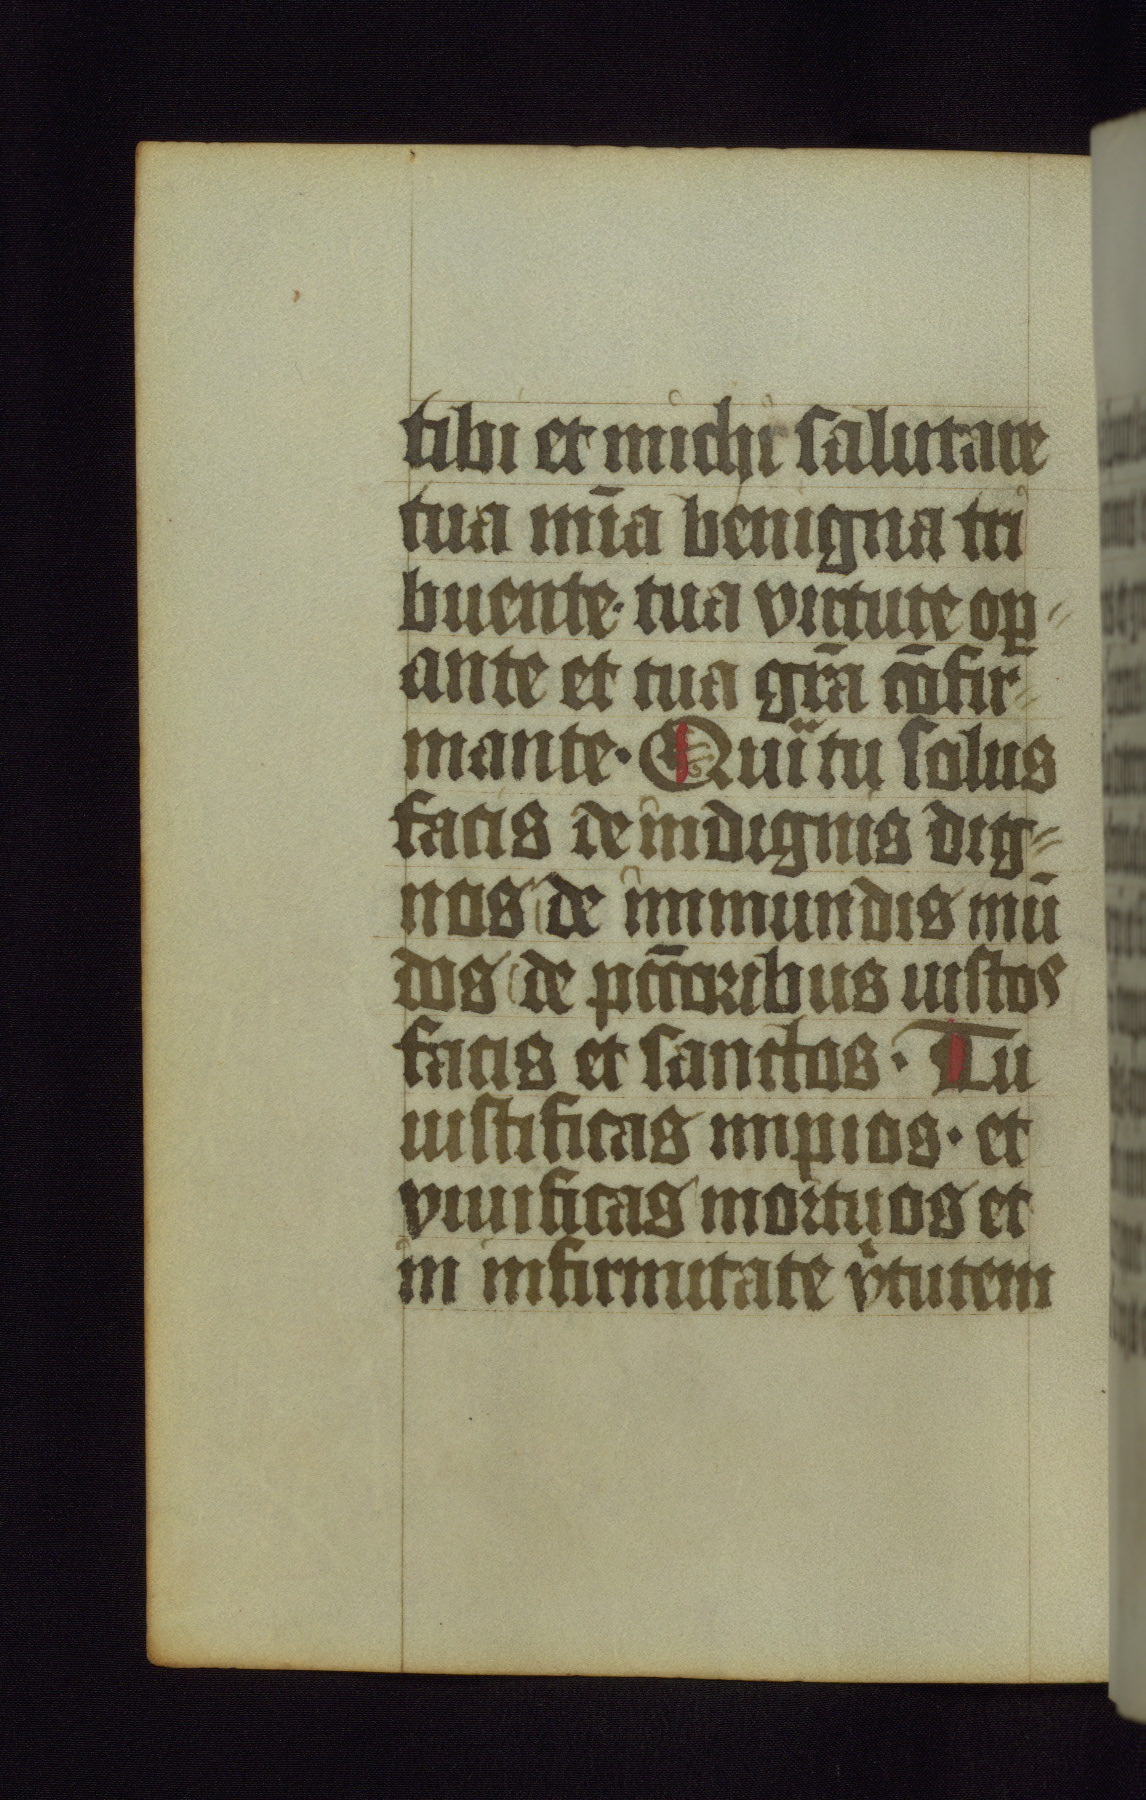 tibi et michi salutare
tua mīa benigna tri
buente· tua virtute op̄⸗
ante et tua grā cōfir⸗
mante· Qui tu solus
facis de indignis dig⸗
nos de immundis mū
dos de pctōribus iustos
facis et sanctos· Tu
iustificas impios· et
viuificas mortuos et
in infirmitate v̾tutem